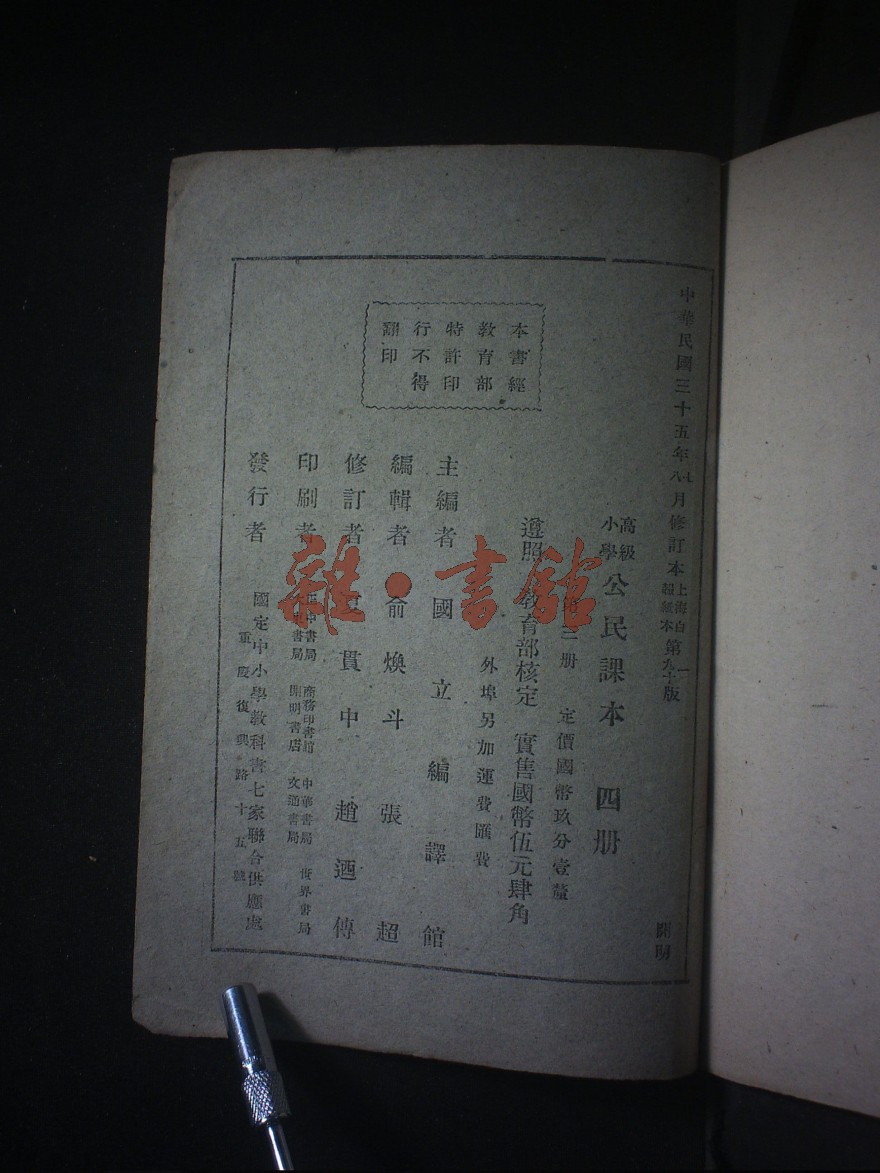 中華民國三十五年七八月修訂本 上海白報紙本第一九十版
開明
高級小學 公民課本 四册
第三册 定價國幣玖分壹釐
遵照 教育部核定 實售國幣伍元肆角
外埠另加運費匯費
本書經
教育部
特許印
行不得
翻印
主編者 國立編譯館
編輯者 俞煥斗 張超
修訂者 夏貫中 趙迺傳
印刷者 正中書局 商務印書館 中華書局 世界書局
大東書局 開明書店 文通書局
發行者 國定中小學教科書七家聯合供應處
重慶復興路十五號
雜·書館